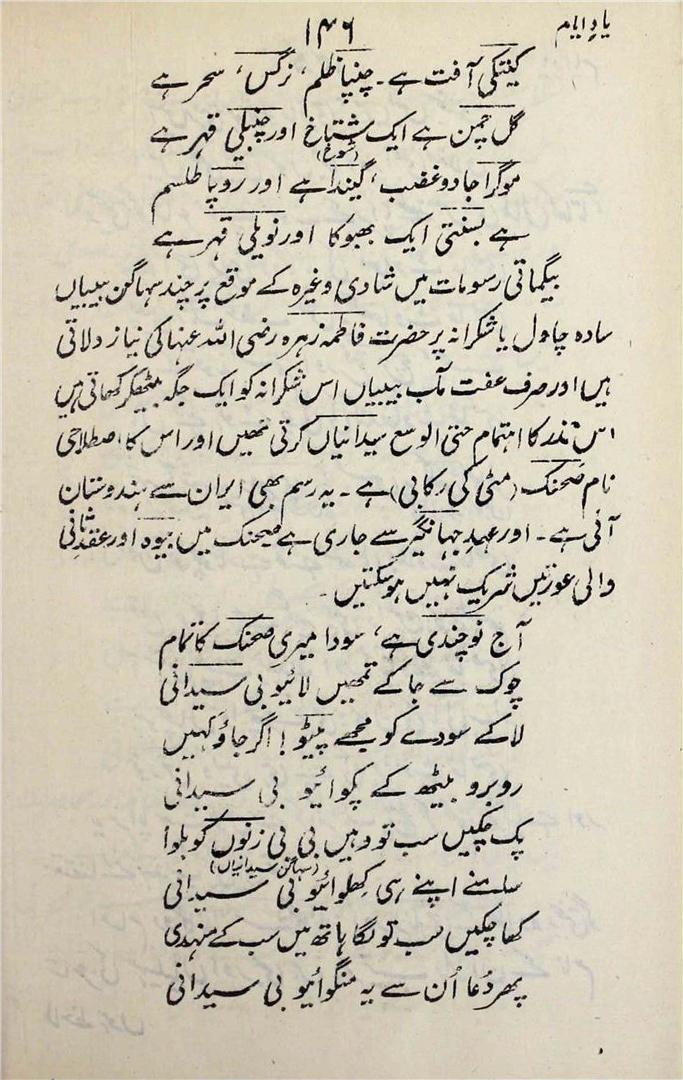 یادِ ایام
۱۴۶
کیتکی آفت ہے۔ چنپا ظلم، نرگس، سحر ہے
گل چمن ہے ایک شتاخ اور چنبیلی قہر ہے
(شوخ)
موگرا جادو غضب، گیندا ہے اور روپا طلسم
ہے بسنتی ایک بھبوکا اور نویلی قہر ہے
بیگماتی رسومات میں شادی وغیرہ کے موقع پر چند سہاگن بیبیاں
سادہ چاول یا شکرانہ پر حضرت فاطمہ زہرہ رضی اللہ عنہا کی نیاز دلاتی
ہیں اور صرف عفت مآب بیبیاں اس شکرانہ کو ایک جگہ بیٹھکر کھاتی ہیں
اس نذر کا اہتمام حتیٰ الوسع سیدانیاں کرتی تھیں اور اس کا اصطلاحی
نام صحنک (مٹی کی رکابی) ہے۔ یہ رسم بھی ایران سے ہندوستان
آئی ہے۔ اور عہدِ جہانگیر سے جاری ہے صحنک میں بیوہ اور عقدِ ثانی
والی عورتیں شریک نہیں ہوسکتیں۔
آج نوچندی ہے، سودا میری صحنک کا تمام
چوک سے جا کے تمھیں لائیو بی سیدانی
لا کے سودے کو مجھے پیٹو! اگر جاؤ کہیں
روبرو بیٹھ کے پکوائیو بی سیدانی
پک چکیں سب تو وہیں بی بی زنوں کو بلوا
(سہاگن سیدانیاں)
سامنے اپنے ہی کھلوائیو بی سیدانی
کھا چکیں سب تو لگا ہاتھ میں سب کے منہدی
پھر دُعا اُن سے یہ منگوائیو بی سیدانی